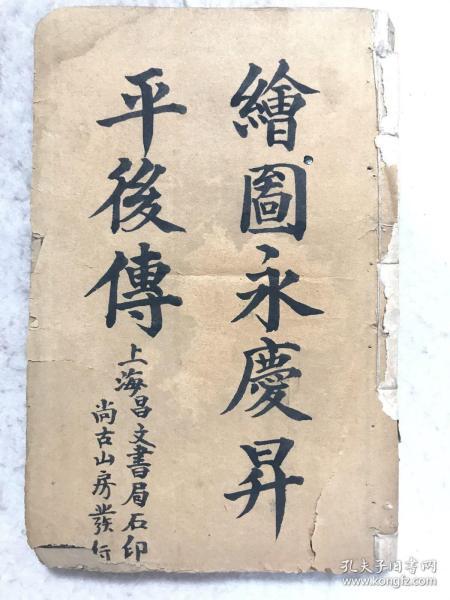 繪圖永慶昇
平後傳
上海昌文書局石印
尚古山房發行
孔夫子旧书网
www.kongfz.com